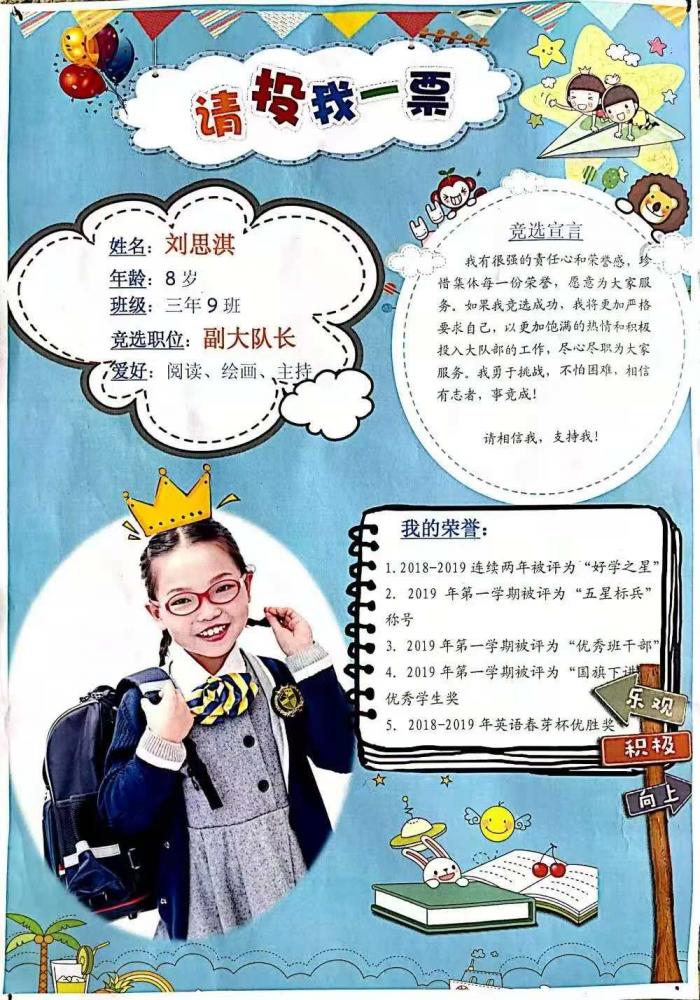 请投我一票
姓名：刘思淇
年龄：8岁
班级：三年9班
竞选职位：副大队长
爱好：阅读、绘画、主持
竞选宣言
我有很强的责任心和荣誉感，珍
惜集体每一份荣誉，愿意为大家服
务。如果我竞选成功，我将更加严格
要求自己，以更加饱满的热情和积极
投入大队部的工作，尽心尽职为大家
服务。我勇于挑战，不怕困难，相信
有志者，事竟成！
请相信我，支持我！
我的荣誉：
1. 2018-2019连续两年被评为“好学之星”
2. 2019 年第一学期被评为“五星标兵”
称号
3. 2019 年第一学期被评为“优秀班干部”
4. 2019 年第一学期被评为“国旗下讲
优秀学生奖
5. 2018-2019 年英语春芽杯优胜奖
乐观
积极
向上